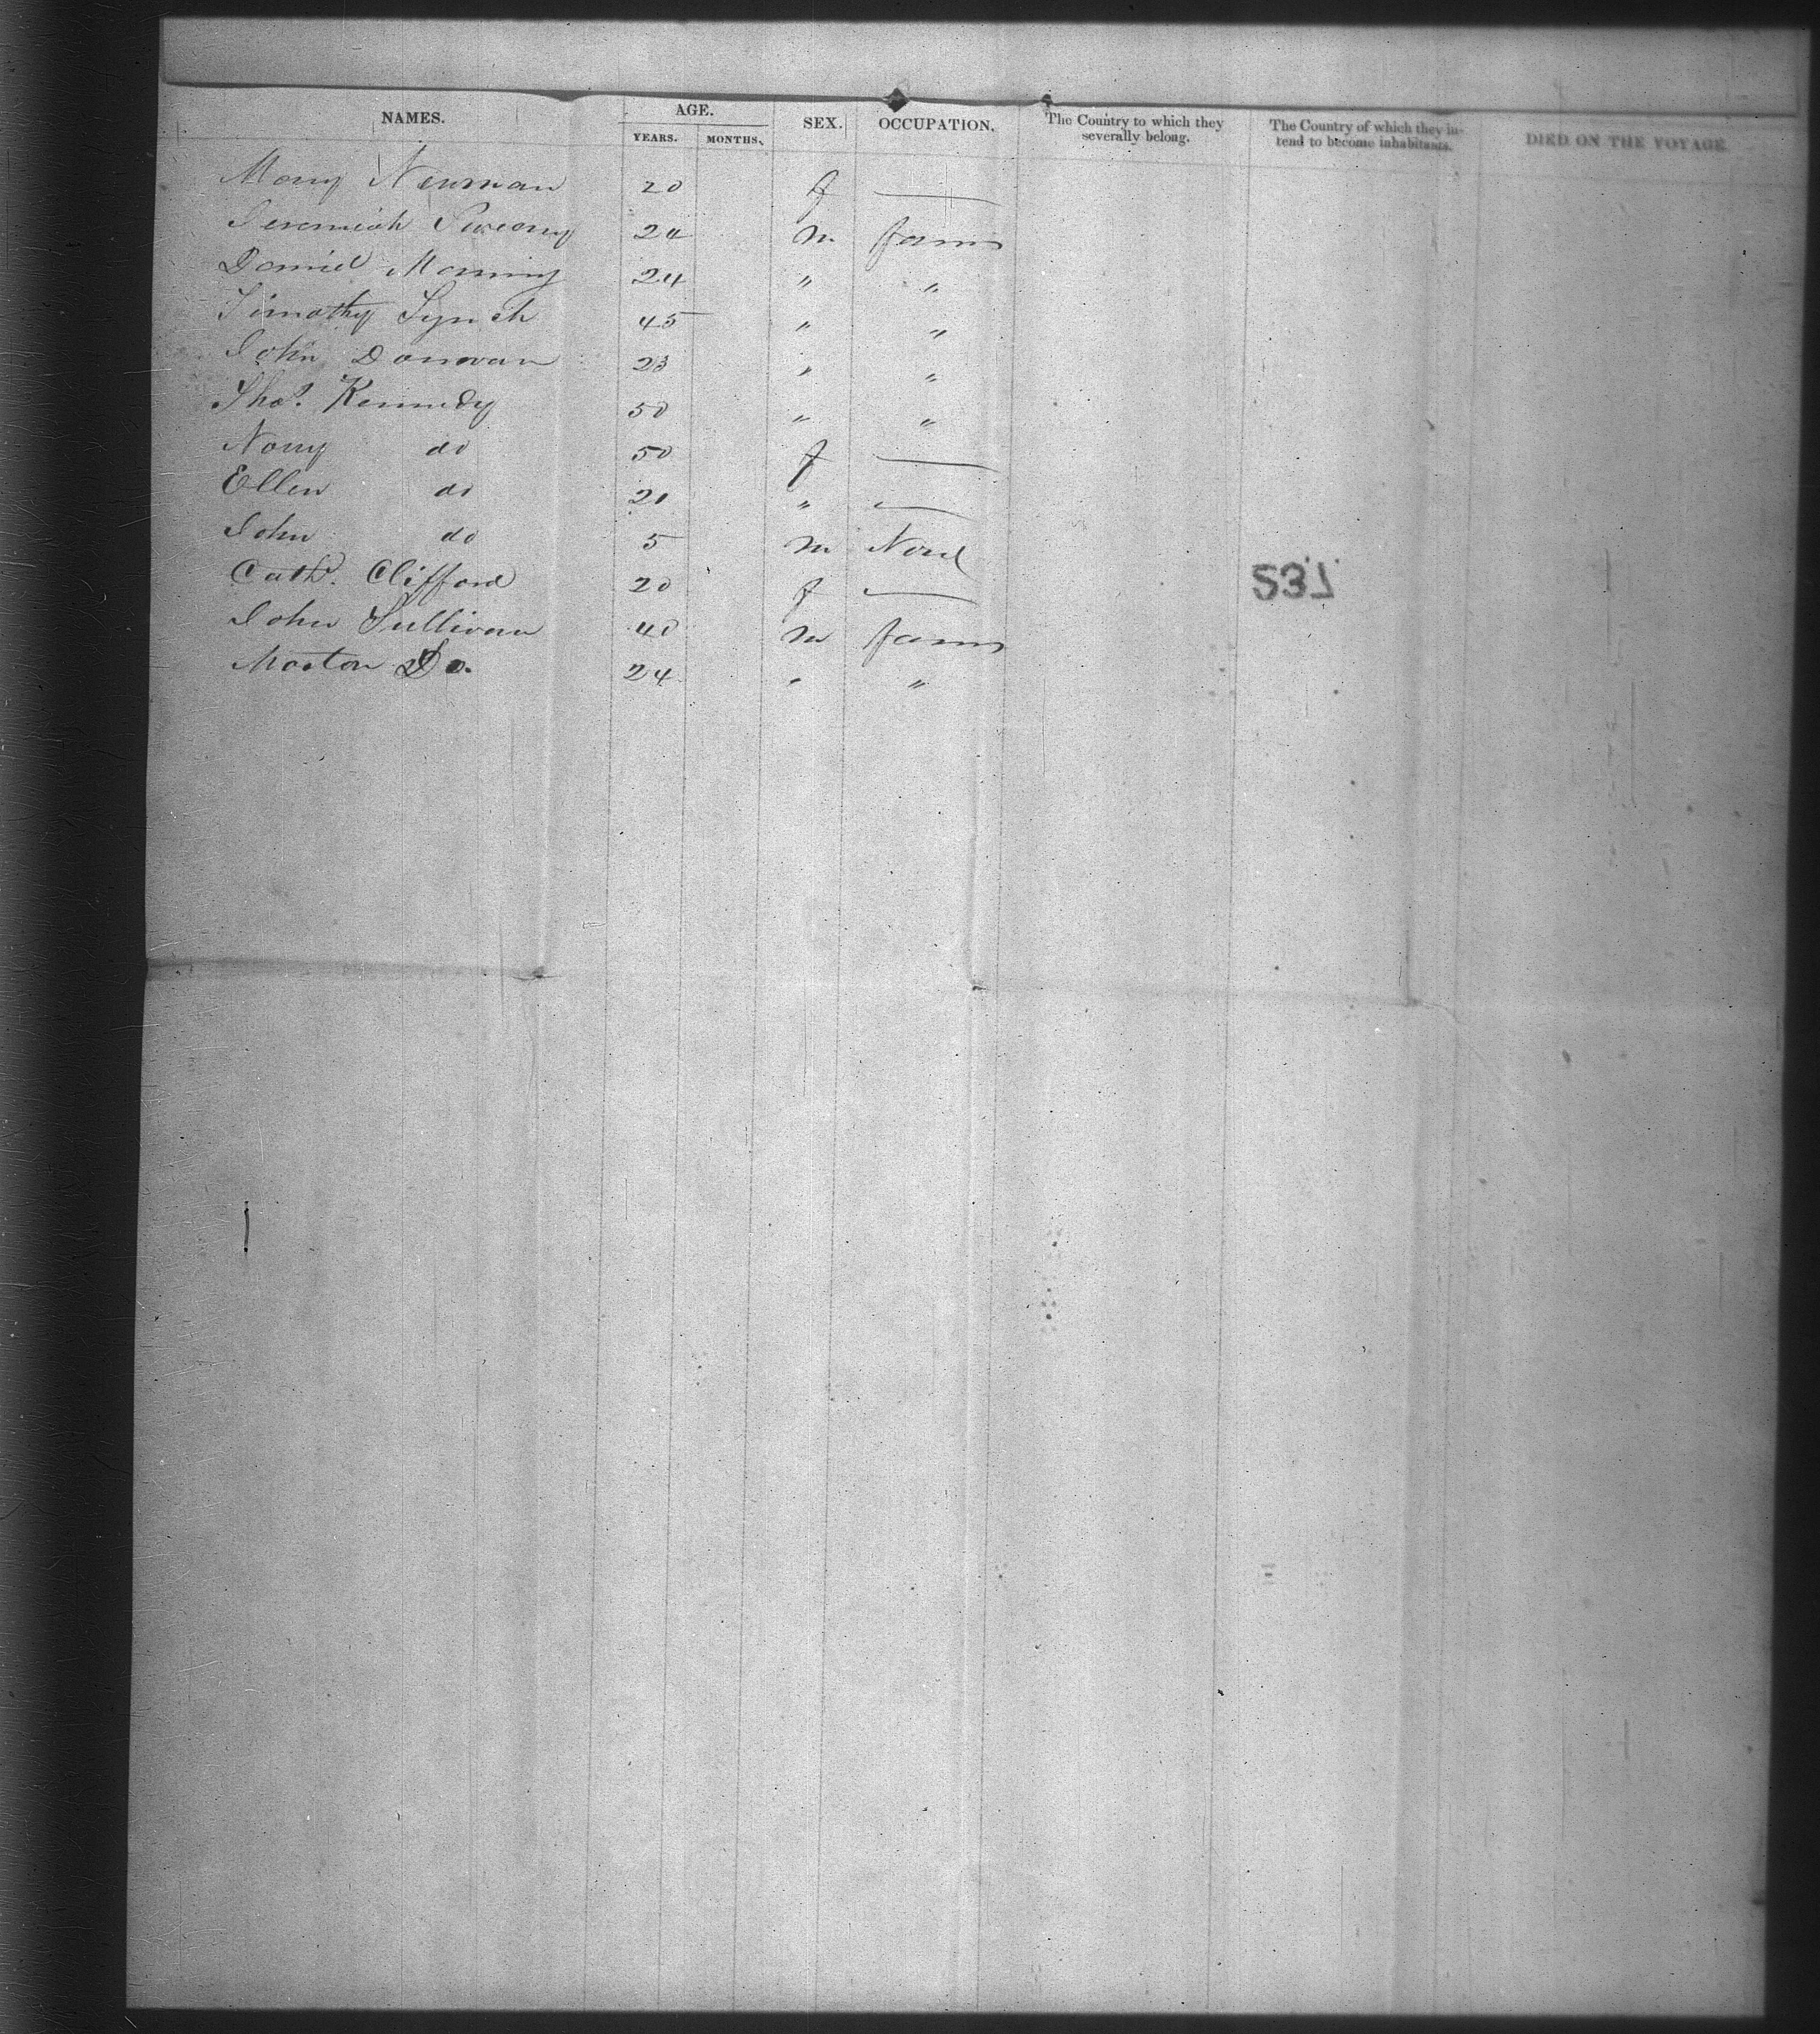 NAMES. AGE. SEX. OCCUPATION. The Country to which they severally belong. The Country of which they intend to become inhabitants. DIED ON THE VOYAGE.
YEARS. MONTHS.
Mary Newman 20 f —
Jeremiah Sweeny 24 m farmr
Daniel 24 " "
Timothy Lynch 45 " "
John Donovan 23 " "
Thos. Kennedy 50 " "
Nory do 50 f —
Ellen do 21 " —
John do 5 m None
Cath. Clifford 20 f —
John Sullivan 40 m farmr
Morton Do. 24 " "